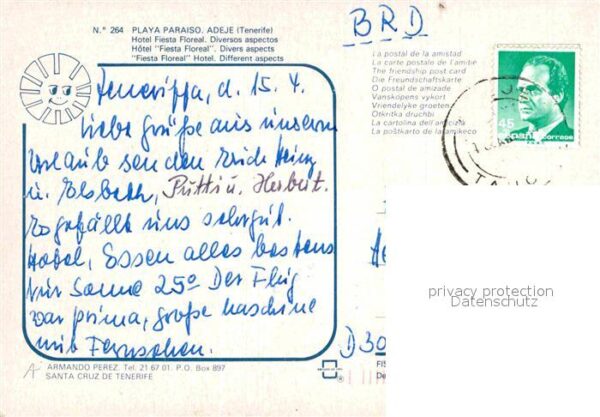 N.º 264 PLAYA PARAISO. ADEJE (Tenerife)
Hotel Fiesta Floreal. Diversos aspectos
Hôtel "Fiesta Floreal". Divers aspects
"Fiesta Floreal" Hotel. Different aspects
BRD
La postal de la amistad
La carte postale de l'amitie
The friendship post card
Die Freundschaftskarte
O postal de amizade
Vansköpens vykort
Vriendelyke groeten
Otkritka druchbi
La cartolina dell'amicizia
La poŝtkarto de la amikeco
45
España correos
Teneriffa, d. 15. 4.
Liebe Grüße aus unserm
Urlaub senden Euch Heinz
u. Elsbeth, Putti u. Herbert.
Es gefällt uns sehr gut.
Hotel, Essen alles bestens
Nur Sonne 25° Der Flug
war prima, große Maschine
mit Fernsehen.
D 30
privacy protection
Datenschutz
ARMANDO PEREZ. Tel. 21 67 01. P.O. Box 897
SANTA CRUZ DE TENERIFE
FIS
De